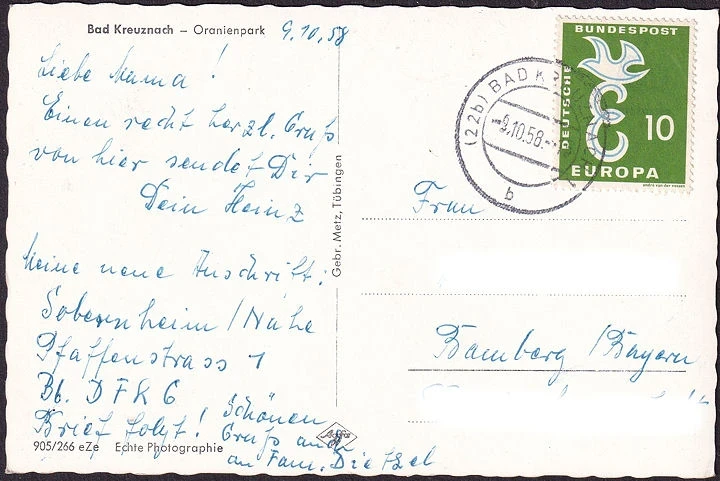 Bad Kreuznach – Oranienpark 9.10.58
Liebe Mama!
Einen recht herzl. Gruß
von hier sendet Dir
Dein Heinz
Meine neue Anschrift:
Sobernheim/Nahe
Pfaffenstrass 1
Bb. DFK6
Brief folgt! Schönen
Gruß auch
an Fam. Dietzel
905/266 eZe Echte Photographie
Gebr. Metz, Tübingen
(22b) BAD KREUZNACH
-9.10.58.-
b
DEUTSCHE
BUNDESPOST
10
EUROPA
andré van der vossen
Frau
Bamberg/Bayern